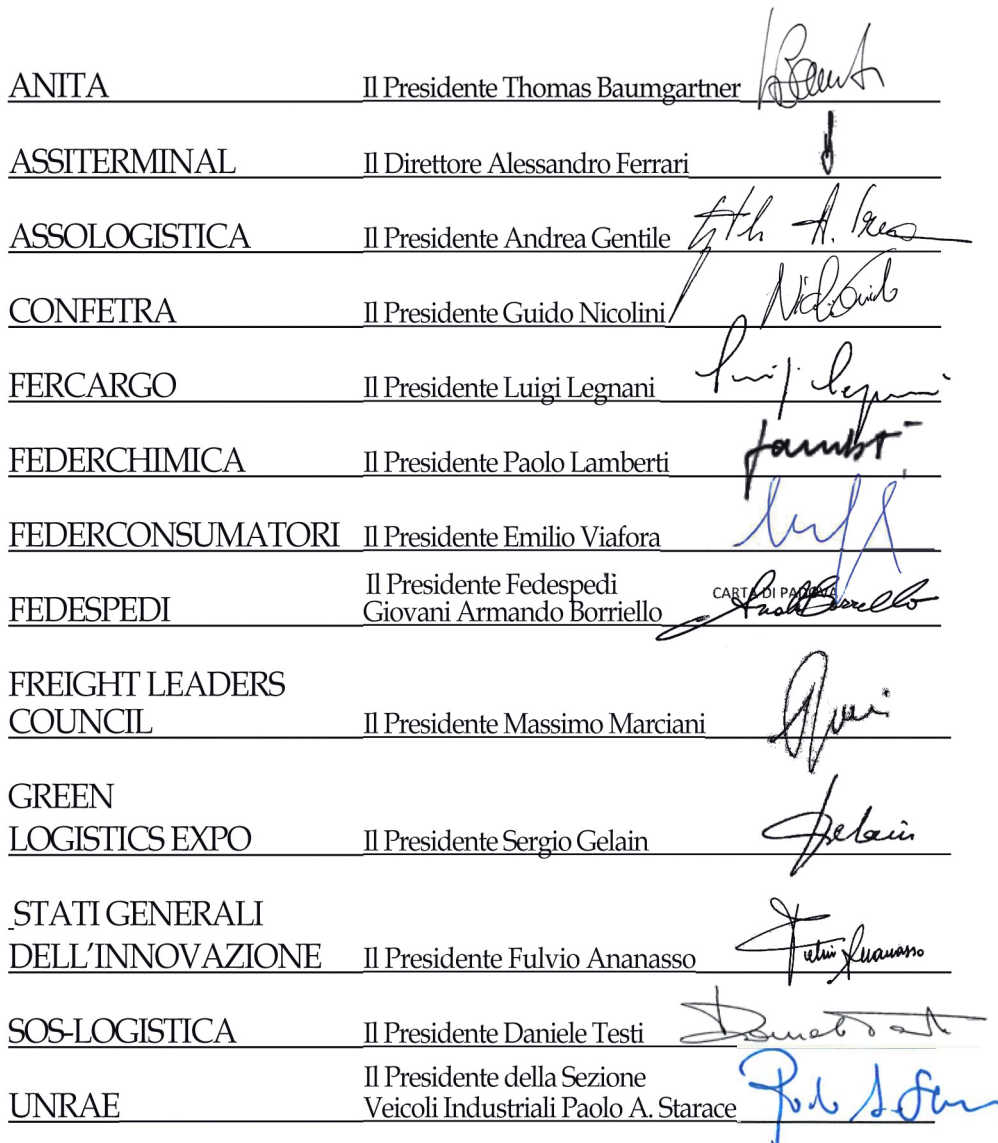 ANITA Il Presidente Thomas Baumgartner
ASSITERMINAL Il Direttore Alessandro Ferrari
ASSOLOGISTICA Il Presidente Andrea Gentile
CONFETRA Il Presidente Guido Nicolini
FERCARGO Il Presidente Luigi Legnani
FEDERCHIMICA Il Presidente Paolo Lamberti
FEDERCONSUMATORI Il Presidente Emilio Viafora
Il Presidente Fedespedi
FEDESPEDI Giovani Armando Borriello
CARTA DI PADOVA
FREIGHT LEADERS
COUNCIL Il Presidente Massimo Marciani
GREEN
LOGISTICS EXPO Il Presidente Sergio Gelain
Gelain
STATI GENERALI
DELL'INNOVAZIONE Il Presidente Fulvio Ananasso
SOS-LOGISTICA Il Presidente Daniele Testi
Il Presidente della Sezione
UNRAE Veicoli Industriali Paolo A. Starace